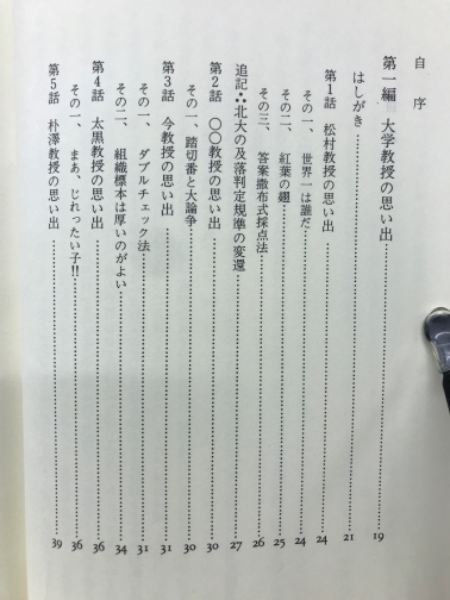 自序
第一編 大学教授の思い出……19
はしがき……21
第1話 松村教授の思い出……24
その一、 世界一は誰だ……24
その二、 紅葉の翅……25
その三、 答案撒布式採点法……26
追記∴北大の及落判定規準の変還……27
第2話 〇〇教授の思い出……30
その一、 踏切番と大論争……30
第3話 今教授の思い出……31
その一、 ダブルチェック法……31
その二、 組織標本は厚いのがよい……34
第4話 太黒教授の思い出……36
その一、 まあ、じれったい子!!……36
第5話 朴澤教授の思い出……39